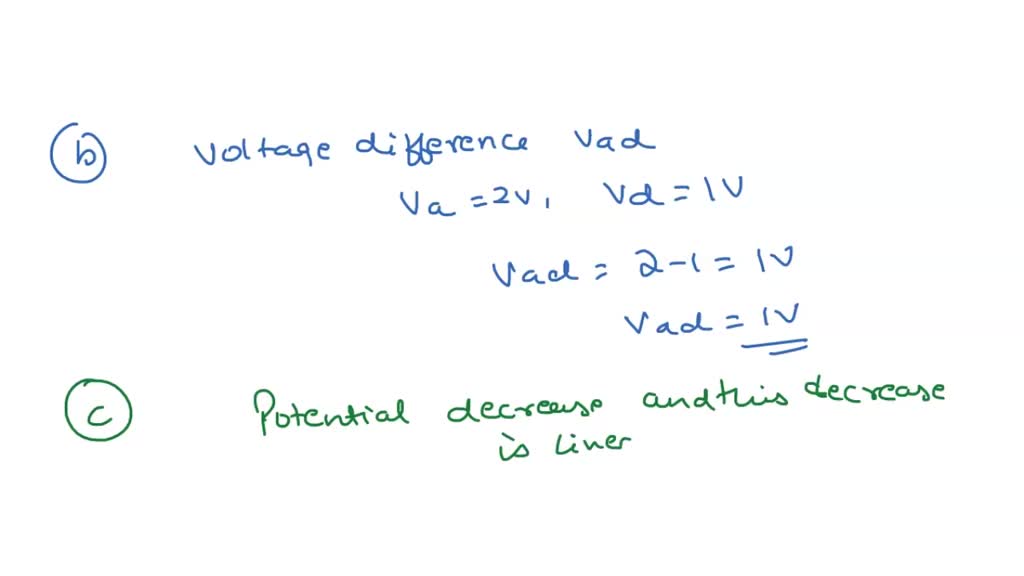 b voltage difference Vad
Va = 2V, Vd = 1V
Vad = 2-1 = 1V
Vad = 1V
c Potential decrease and this decrease
is liner